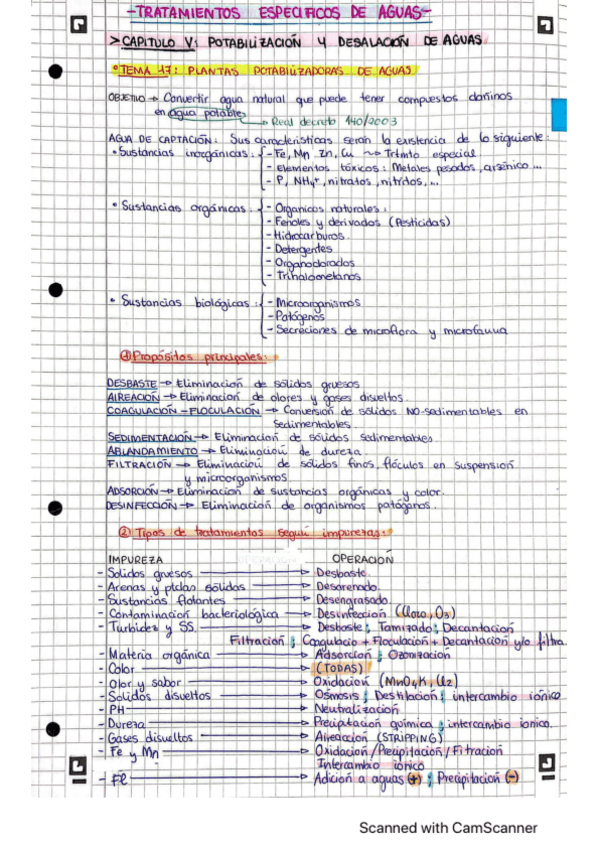 -TRATAMIENTOS ESPECIFICOS DE AGUAS-
> CAPITULO V: POTABILIZACIÓN Y DESALACIÓN DE AGUAS
• TEMA 17: PLANTAS POTABILIZADORAS DE AGUAS
OBJETIVO → Convertir agua natural que puede tener compuestos dañinos
en agua potable
→ Real decreto 140/2003
AGUA DE CAPTACIÓN: Sus características serán la existencia de lo siguiente:
• Sustancias inorgánicas: - Fe, Mn, Zn, Cu → Trtmto especial
- Elementos tóxicos: Metales pesados, arsénico...
- P, NH4+, nitratos, nitritos,...
• Sustancias orgánicas: - Organicos naturales.
- Fenoles y derivados (Pesticidas)
- Hidrocarburos.
- Detergentes
- Organoclorados
- Trihalometanos
• Sustancias biológicas: - Microorganismos
- Patógenos
- Secreciones de microflora y microfauna
① Propósitos principales:
DESBASTE → Eliminación de sólidos gruesos
AIREACIÓN → Eliminación de olores y gases disueltos.
COAGULACIÓN-FLOCULACIÓN → Conversión de sólidos NO-sedimentables en
sedimentables.
SEDIMENTACIÓN → Eliminación de sólidos sedimentables.
ABLANDAMIENTO → Eliminación de dureza.
FILTRACIÓN → Eliminación de sólidos finos, flóculos en suspensión
y microorganismos
ADSORCIÓN → Eliminación de sustancias orgánicas y color.
DESINFECCIÓN → Eliminación de organismos patógenos.
② Tipos de tratamientos según impurezas:
IMPUREZA OPERACIÓN
- Solidos gruesos → Desbaste.
- Arenas y ptclas sólidas → Desarenado.
- Sustancias flotantes → Desengrasado.
- Contaminación bacteriológica → Desinfección (Cloro, O3)
- Turbidez y SS. → Desbaste; Tamizado; Decantación
Filtración; Coagulacio + Floculación + Decantación y/o filtra.
- Materia orgánica → Adsorción; Ozonización
- Color → (TODAS)
- Olor y sabor → Oxidación (MnO4K, Cl2)
- Solidos disueltos → Osmosis; Destilación; intercambio iónico
- PH → Neutralización
- Dureza → Precipitación química; intercambio ionico.
- Gases disueltos → Aireacción (STRIPPING)
- Fe y Mn → Oxidación/Precipitación/Filtración
Intercambio iónico
→ Adición a aguas (+); Precipitación (-)
Scanned with CamScanner